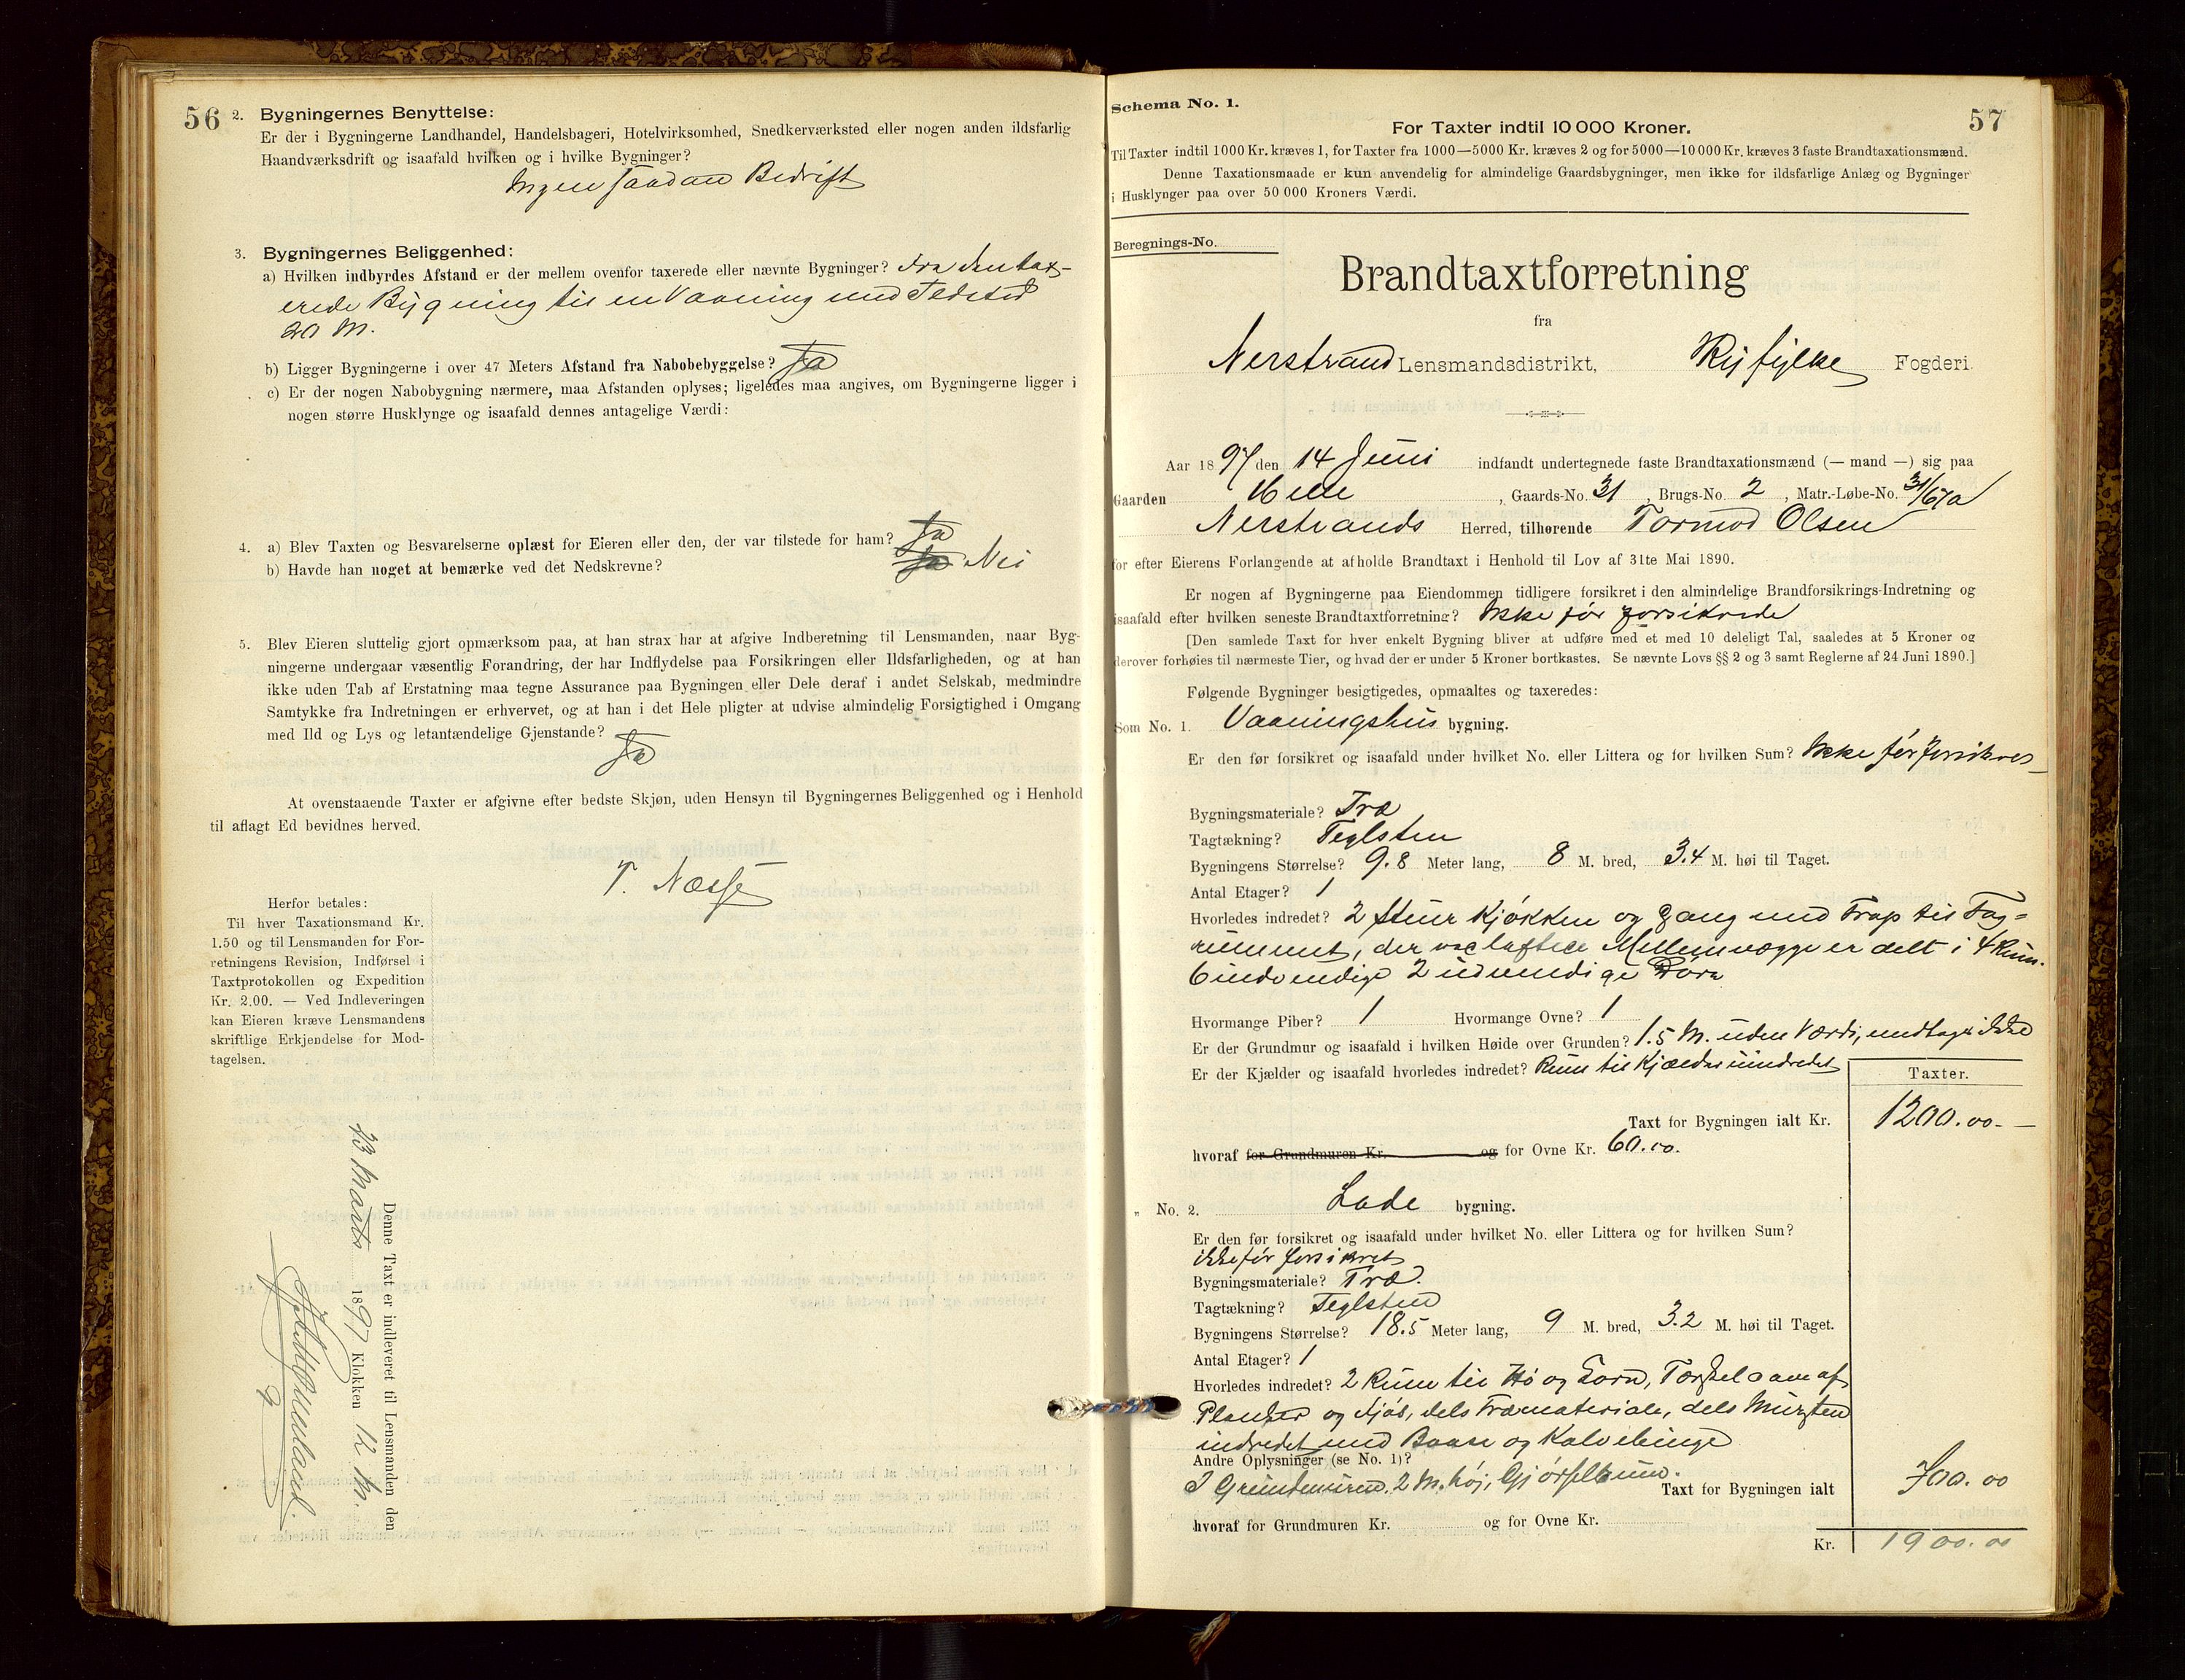 56
2. Bygningernes Benyttelse:
Er der i Bygningerne Landhandel, Handelsbageri, Hotelvirksomhed, Snedkerværksted eller nogen anden ildsfarlig
Haandværksdrift og isaafald hvilken og i hvilke Bygninger?
Ingen saadan Bedrift
3. Bygningernes Beliggenhed:
a) Hvilken indbyrdes Afstand er der mellem ovenfor taxerede eller nævnte Bygninger? Fra den tax-
erede Bygning til en Vaaning med Ildsted
20 M.
b) Ligger Bygningerne i over 47 Meters Afstand fra Nabobebyggelse? Ja
c) Er der nogen Nabobygning nærmere, maa Afstanden oplyses; ligeledes maa angives, om Bygningerne ligger i
nogen større Husklynge og isaafald dennes antagelige Værdi:
4. a) Blev Taxten og Besvarelserne oplæst for Eieren eller den, der var tilstede for ham? Ja
b) Havde han noget at bemærke ved det Nedskrevne? Ja Nei
5. Blev Eieren sluttelig gjort opmærksom paa, at han strax har at afgive Indberetning til Lensmanden, naar Byg-
ningerne undergaar væsentlig Forandring, der har Indflydelse paa Forsikringen eller Ildsfarligheden, og at han
ikke uden Tab af Erstatning maa tegne Assurance paa Bygningen eller Dele deraf i andet Selskab, medmindre
Samtykke fra Indretningen er erhvervet, og at han i det Hele pligter at udvise almindelig Forsigtighed i Omgang
med Ild og Lys og letantændelige Gjenstande?
Ja
At ovenstaaende Taxter er afgivne efter bedste Skjøn, uden Hensyn til Bygningernes Beliggenhed og i Henhold
til aflagt Ed bevidnes herved.
T. Næsse
Herfor betales:
Til hver Taxationsmand Kr.
1.50 og til Lensmanden for For-
retningens Revision, Indførsel i
Taxtprotokollen og Expedition
Kr. 2.00. — Ved Indleveringen
kan Eieren kræve Lensmandens
skriftlige Erkjendelse for Mod-
tagelsen.
Denne Taxt er indleveret til Lensmanden den
23 Marts 1897 Klokken 12 M.
Schema No. 1.
57
For Taxter indtil 10 000 Kroner.
Til Taxter indtil 1000 Kr. kræves 1, for Taxter fra 1000—5000 Kr. kræves 2 og for 5000—10 000 Kr. kræves 3 faste Brandtaxationsmænd.
Denne Taxationsmaade er kun anvendelig for almindelige Gaardsbygninger, men ikke for ildsfarlige Anlæg og Bygninger
i Husklynger paa over 50 000 Kroners Værdi.
Beregnings-No.
Brandtaxtforretning
fra
Nerstrand Lensmandsdistrikt, Ryfylke Fogderi
Aar 1897 den 14 Juni indfandt undertegnede faste Brandtaxationsmænd (— mand —) sig paa
Gaarden Helle, Gaards-No. 31, Brugs-No. 2, Matr.-Løbe-No. 31/67a
Nerstrands Herred, tilhørende Tormod Olsen
for efter Eierens Forlangende at afholde Brandtaxt i Henhold til Lov af 31te Mai 1890.
Er nogen af Bygningerne paa Eiendommen tidligere forsikret i den almindelige Brandforsikrings-Indretning og
isaafald efter hvilken seneste Brandtaxtforretning? Ikke før forsikrede
[Den samlede Taxt for hver enkelt Bygning bliver at udføre med et med 10 deleligt Tal, saaledes at 5 Kroner og
derover forhøies til nærmeste Tier, og hvad der er under 5 Kroner bortkastes. Se nævnte Lovs §§ 2 og 3 samt Reglerne af 24 Juni 1890.]
Følgende Bygninger besigtigedes, opmaaltes og taxeredes:
Som No. 1. Vaaningshus bygning.
Er den før forsikret og isaafald under hvilket No. eller Littera og for hvilken Sum? Ikke før forsikret
Bygningsmateriale? Træ
Tagtækning? Teglsten
Bygningens Størrelse? 9.8 Meter lang, 8 M. bred, 3.4 M. høi til Taget.
Antal Etager? 1
Hvorledes indredet? 2 Stuer Kjøkken og Gang med Trap til Tag=
rummet, der ved laftede Mellemvægge er delt i 4 Rum.
6 indvendige 2 udvendige Døre
Hvormange Piber? 1 Hvormange Ovne? 1
Er der Grundmur og isaafald i hvilken Høide over Grunden? 1.5 M. uden Værdi, medtages ikke
Er der Kjælder og isaafald hvorledes indredet? Rum til Kjælder uindredet
Taxter.
Taxt for Bygningen ialt Kr. 1200.00.—
hvoraf for Grundmuren Kr. og for Ovne Kr. 60.00.
„ No. 2. Lade bygning.
Er den før forsikret og isaafald under hvilket No. eller Littera og for hvilken Sum?
ikke før forsikret
Bygningsmateriale? Træ.
Tagtækning? Teglsten
Bygningens Størrelse? 18.5 Meter lang, 9 M. bred, 3.2 M. høi til Taget.
Antal Etager? 1
Hvorledes indredet? 2 Rum til Hø og Korn, Tærskelaave af
Planker og Fjøs, dels Træmateriale, dels Mursten
indredet med Baase og Kalvebinge
Andre Oplysninger (se No. 1)?
I Grundmuren, 2 M. høj, Gjødselrum. Taxt for Bygningen ialt 700.00
hvoraf for Grundmuren Kr. og for Ovne Kr.
Kr. 1900.00